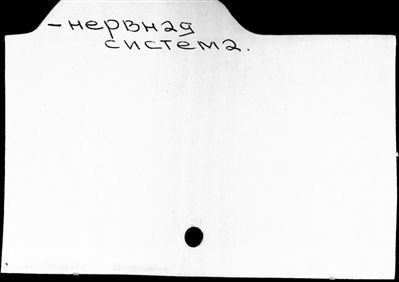 -нервная
система.